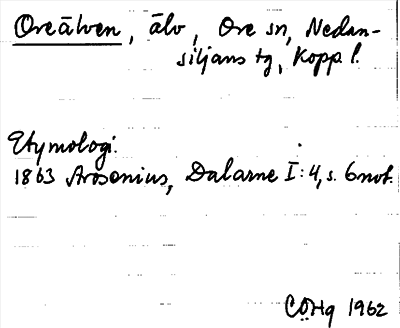 Oreälven, älv, Ore sn, Nedan-
siljans tg, Kopp. l.
Etymologi.
1863 Arosenius, Dalarne I:4, s. 6 not.
COHg 1962